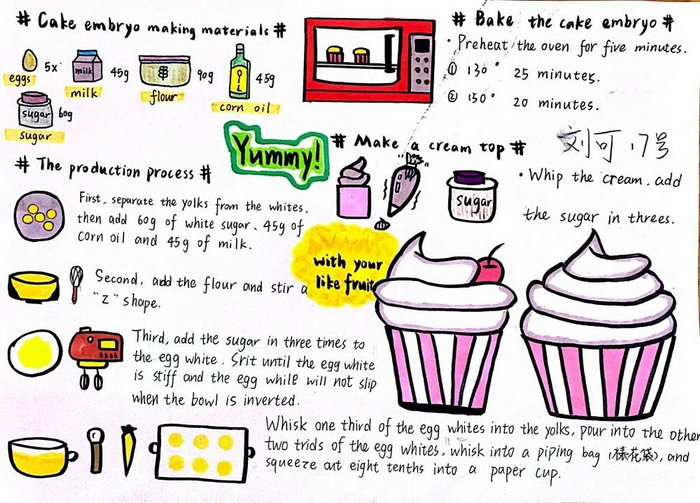 # Cake embryo making materials #
eggs 5x
milk
45g
milk
90g
flour
OIL
45g
corn oil
sugar
60g
sugar
# Bake the cake embryo #
· Preheat the oven for five minutes.
① 130° 25 minutes.
② 150° 20 minutes.
Yummy!
# Make a cream top #
刘可, 17号
sugar
· Whip the cream, add
the sugar in threes.
with your
like fruit
# The production process #
First, separate the yolks from the whites,
then add 60g of white sugar、45g of
corn oil and 45g of milk.
Second, add the flour and stir a
"Z" shape.
Third, add the sugar in three times to
the egg white. Srit until the egg white
is stiff and the egg while will not slip
when the bowl is inverted.
Whisk one third of the egg whites into the yolks, pour into the other
two trids of the egg whites, whisk into a piping bag (裱花袋), and
squeeze out eight tenths into a paper cup.